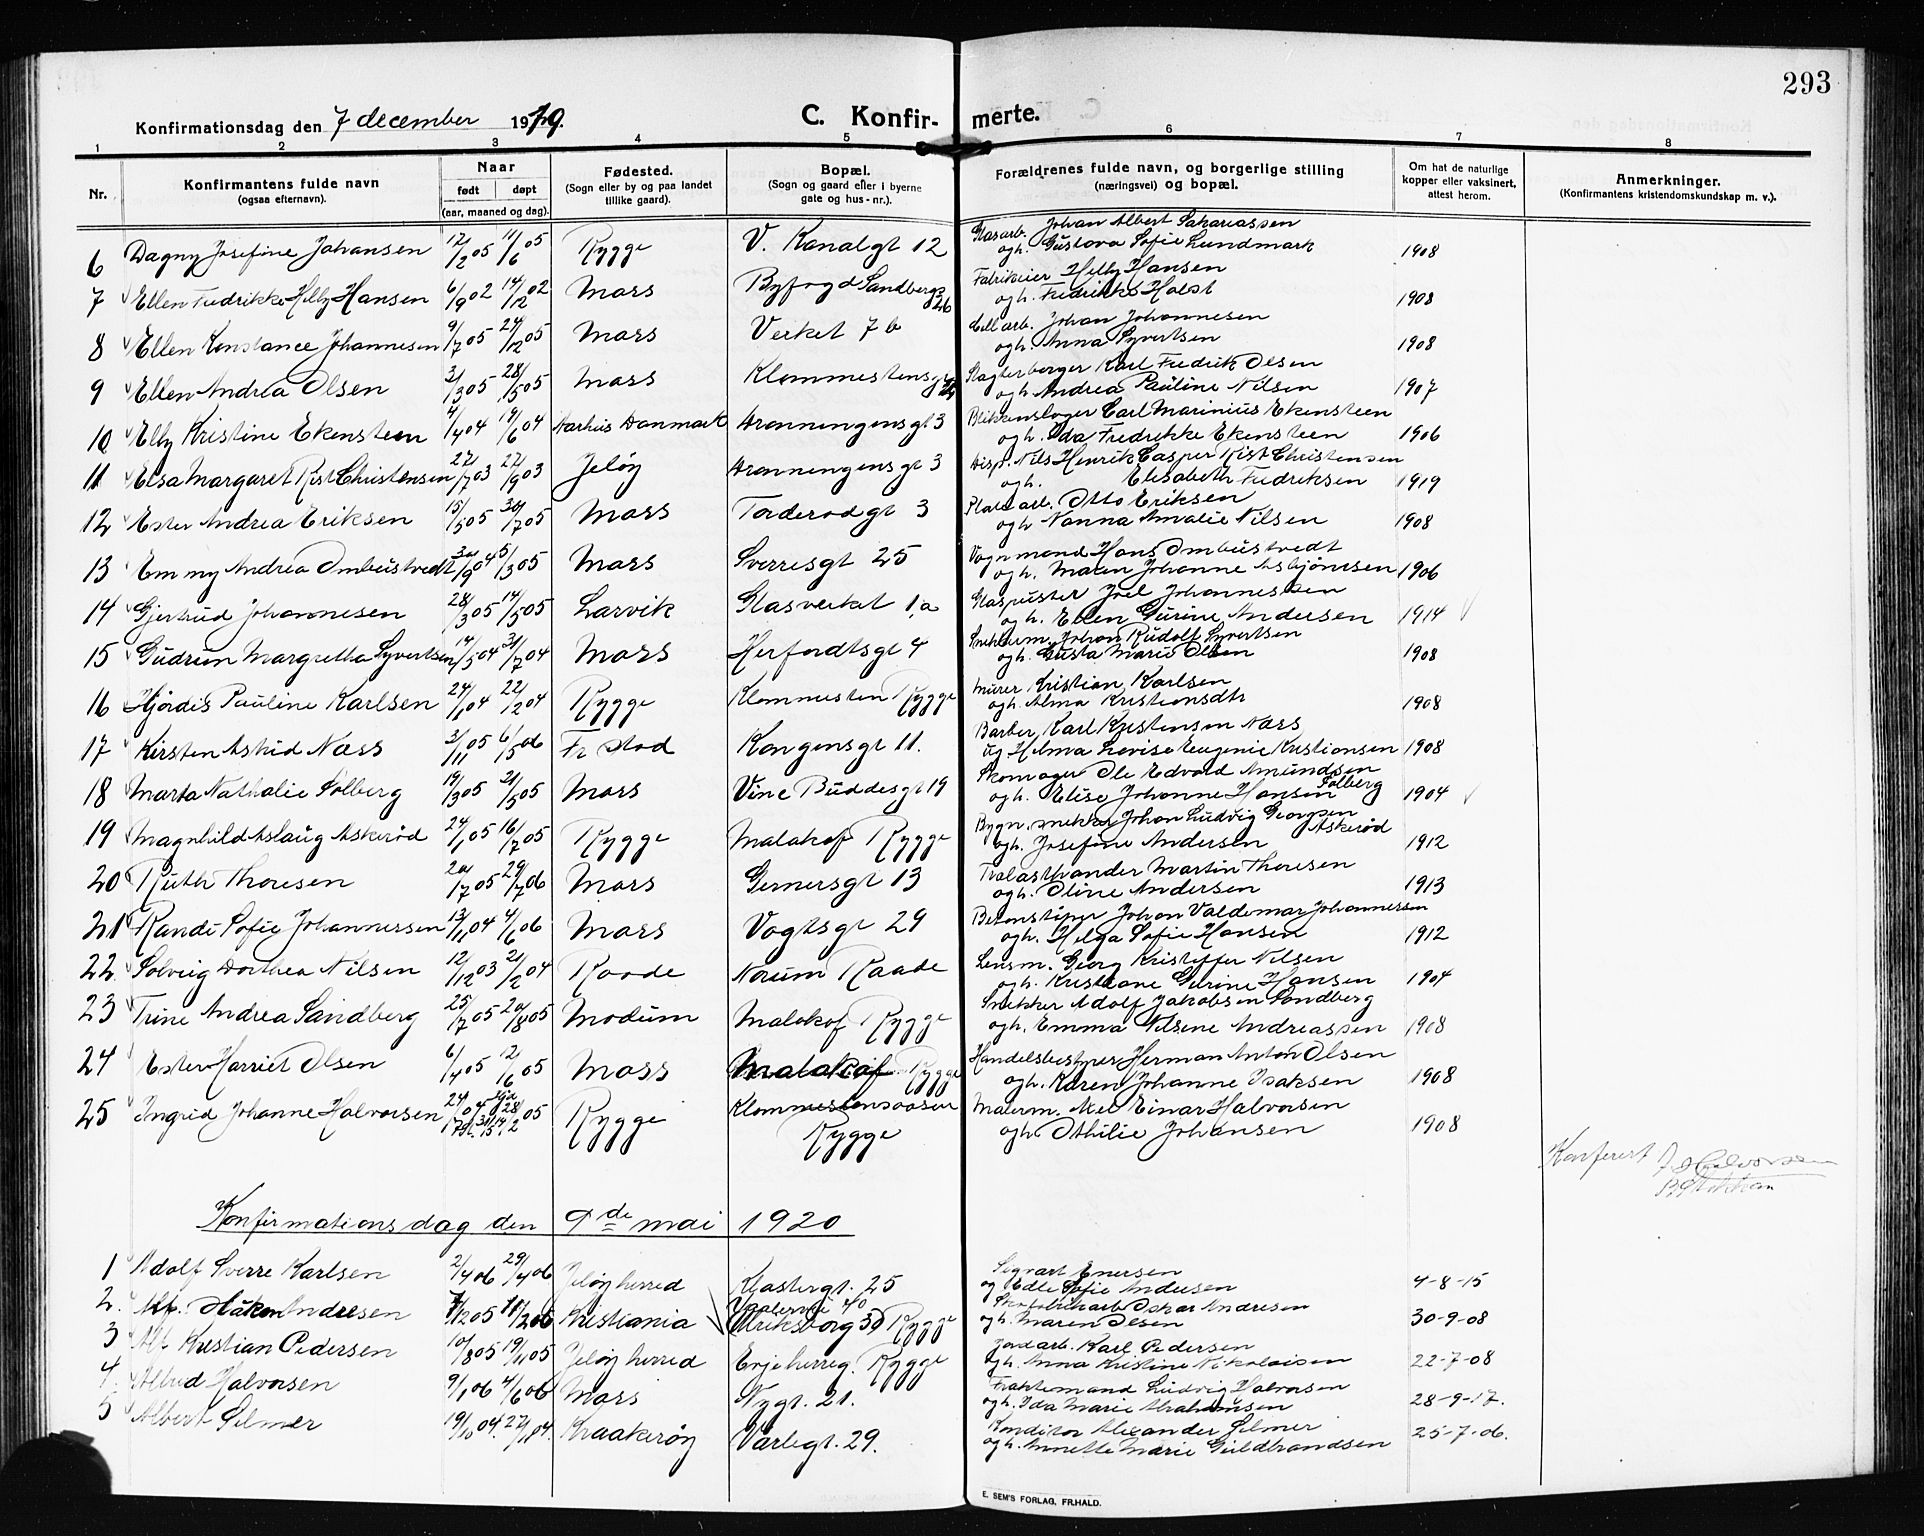 293
Konfirmationsdag den 7 december 1919.
C. Konfir- merte.
1 2 3 4 5 6 7 8
Nr.
Konfirmantens fulde navn
(ogsaa efternavn).
Naar
født døpt
(aar, maaned og dag).
Fødested.
(Sogn eller by og paa landet
tillike gaard).
Bopæl.
(Sogn og gaard eller i byerne
gate og hus-nr.).
Forældrenes fulde navn, og borgerlige stilling
(næringsvei) og bopæl.
Om hat de naturlige
kopper eller vaksinert,
attest herom.
Anmerkninger.
(Konfirmantens kristendomskundskap m. v.).
6 Dagny Josefine Johansen 12/2 05 11/6 05 Rygge V. Kanalgt 12 Glasarb. Johan Albert Sakariassen
ogh. Gustava Sofie Lundmark 1908
7 Ellen Fredrikke Helly Hansen 6/9 02 14/12 02 Moss Byfogd Sandbergs Fabrikeier Helly Hansen
ogh. Fredrikke Holst 1908
8 Ellen Konstance Johannesen 9/7 05 24/12 05 Moss Verket 7 b Cell arb. Johan Johannesen
ogh. Anna Syvertsen 1908
9 Ellen Andrea Olsen 3/3 05 28/5 05 Moss Klommestensgt Slagterborger Karl Fredrik Olsen
ogh Andrea Pauline Nilsen 1907
10 Elly Kristine Ekensteen 4/4 04 19/6 04 Aarhus Danmark Dronningensgt 3 Blikkenslager Carl Marinius Ekensteen
ogh. Ida Fredrikke Ekensteen 1906
11 Elsa Margaret Rist Christensen 22/7 03 27/9 03 Jeløy Dronningensgt 3 Disp. Nils Henrik Casper Rist Christensen
ogh. Elisabeth Fredriksen 1919
12 Ester Andrea Eriksen 15/5 05 30/7 05 Moss Torderodgt 3 Plate arb. Otto Eriksen
ogh Nanna Amalie Nilsen 1908
13 Emmy Andrea Ombustvedt 30/9 04 5/3 05 Moss Sverresgt 25 Vognmand Hans Ombustvedt
ogh. Maren Johanne Asbjørnsen 1906
14 Gjertrud Johannesen 28/3 05 14/5 05 Larvik Glasverket 1a Glaspuster Joel Johannessen
ogh. Ellen Gurine Andersen 1914
15 Gudrun Margretha Syvertsen 14/5 04 31/7 04 Moss Herfordtsgt 4 Snekkerm. Johan Rudolf Syvertsen
ogh. Gusta Marie Olsen 1908
16 Hjørdis Pauline Karlsen 24/1 04 22/2 04 Rygge Klommesten Rygge Murer Kristian Karlsen
ogh. Alma Kristiansdtr 1908
17 Kirsten Astrid Næss 3/11 05 6/5 06 Fr stad Kongensgt 11. Barber Karl Kristensen Næss
ug. Helma Lovise Eugenie Kristiansen 1908
18 Marta Nathalie Solberg 19/3 05 21/5 05 Moss Vinc Buddesgt 19 Skomager Ole Edvard Amundsen
ogh. Elise Johanne Hansen Solberg 1904
19 Magnhild Aslaug Askerød 24/1 05 16/7 05 Rygge Malakof Rygge Bygn. snekker Johan Ludvig Georgsen
Askerød
ogh. Josefine Andersen 1912
20 Ruth Thoresen 20/7 05 29/7 06 Moss Gernersgt 13 Trælasthandler Martin Thoresen
ogh. Oline Andersen 1913
21 Randi Sofie Johannessen 13/11 04 4/6 06 Moss Vogtsgt 29 Betonstøper Johan Valdemar Johannessen
ogh. Helga Sofie Hansen 1912
22. Solveig Dorthea Nilsen 12/12 03 21/2 04 Raade Norum Raade Lensm. Georg Kristoffer Nilsen
ogh. Kristiane Gurine Hansen 1904
23 Trine Andrea Sandberg 25/7 05 20/8 05 Modum Malakof Rygge Snekker Adolf Jakobsen Sandberg
ogh. Emma Nilsine Andreassen 1908
24 Ester Harriet Olsen 6/4 05 12/6 05 Moss Malakof Rygge Handelsbestyrer Herman Anton Olsen
ogh. Karen Johanne Isaksen 1908
25 Ingrid Johanne Halvorsen 05 Rygge Klommestensaasen
Rygge Malerm. Axel Einar Halvorsen
ogh Othilie Johansen 1908
Konferert J Halvorsen
Konfirmationsdag den 9de mai 1920
1 Adolf Sverre Karlsen 2/4 06 29/4 06 Jeløy herred Klostergt. 25 Sigvart Enersen
og Edle Sofie Andersen 4-8-15
2. Alf. Håkon Andresen 7/12 05 11/2 06 Kristiania Ulriksborg 30 Rygge Skofabrikarb Oskar Andresen
ogh. Maren Olsen 30-9-08
3 Alf Kristian Pedersen 10/8 05 19/11 05 Jeløy herred Erjeherreg. Rygge Jordarb. Karl Pedersen
ogh. Anna Kristine Nikolaisen 22-7-08
4. Alfred Halvorsen 9/1 06 4/6 06 Moss Nygt. 21. Fraktemand Ludvig Halvorsen
ogh. Ida Marie Abrahamsen 28-9-17.
5 Albert Selmer 19/10 04. 27/11 04. Kraakerøy Varlegt. 29. Konditor Alexander Selmer
ogh. Annette Marie Guldbrandsen 25-7-06.
E. SEM'S FORLAG, FR.HALD.